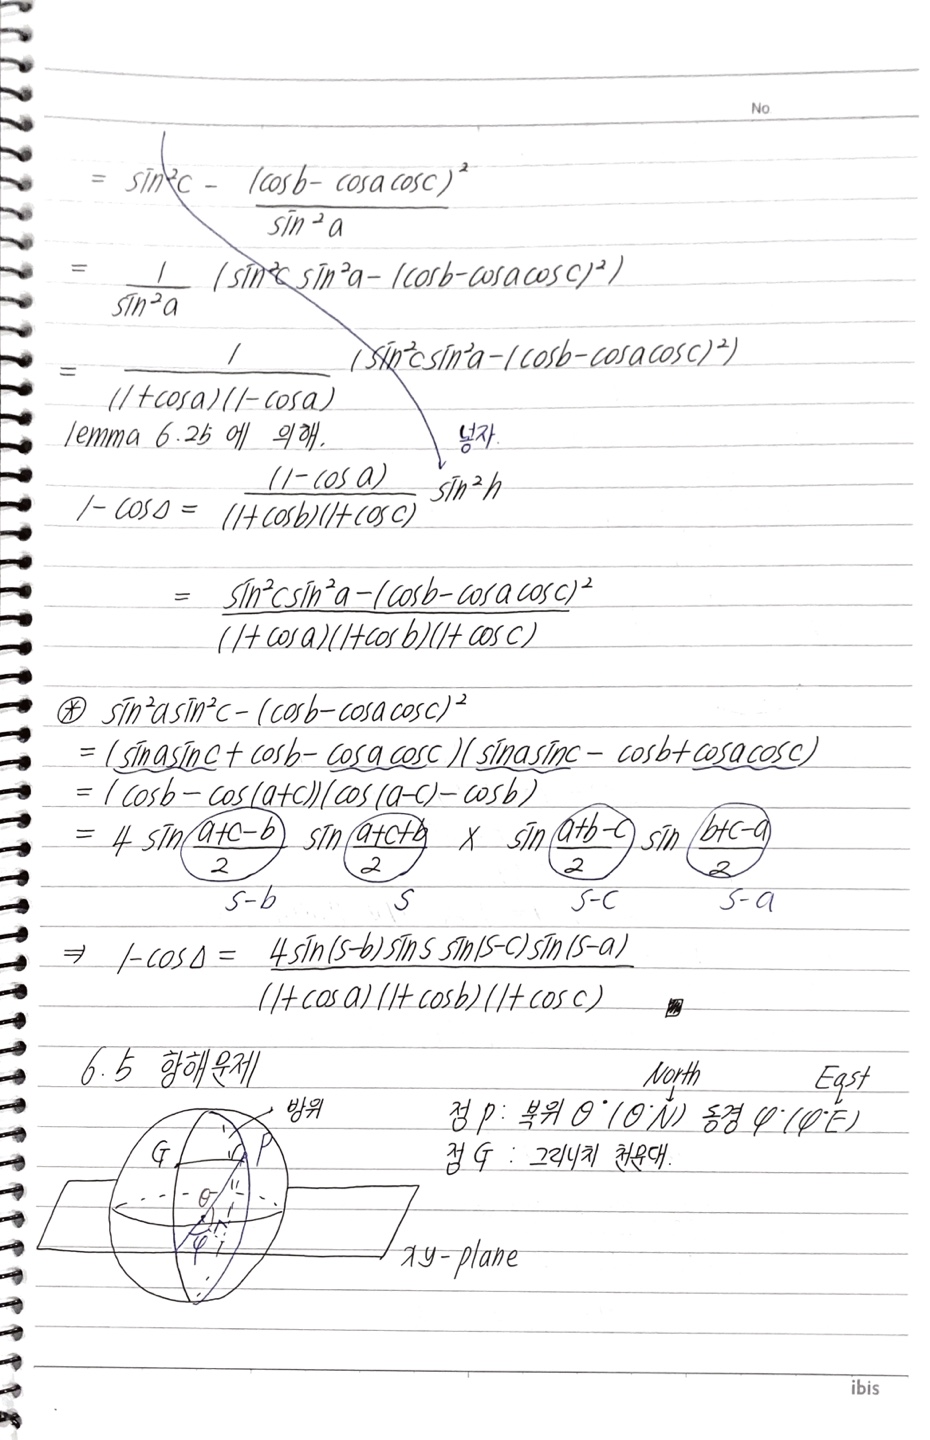 No
= sin²c - (cosb - cosa cosc)² / sin²a
= 1 / sin²a (sin²c sin²a - (cosb - cosa cosc)²)
= 1 / (1+cosa)(1-cosa) (sin²c sin²a - (cosb - cosa cosc)²)
lemma 6.25 에 의해.
1-cos△ = (1-cosa) / (1+cosb)(1+cosc) sin²h
= sin²c sin²a - (cosb - cosa cosc)² / (1+cosa)(1+cosb)(1+cosc)
⊛ sin²a sin²c - (cosb - cosa cosc)²
= (sina sinc + cosb - cosa cosc)(sina sinc - cosb + cosa cosc)
= (cosb - cos(a+c))(cos(a-c) - cosb)
= 4 sin (a+c-b)/2 sin (a+c+b)/2 × sin (a+b-c)/2 sin (b+c-a)/2
s-b s s-c s-a
⇒ 1-cos△ = 4sin(s-b) sins sin(s-c) sin(s-a) / (1+cosa)(1+cosb)(1+cosc)
6.5 항해문제
North East
방위
점 P : 북위 θ° (θ°N) 동경 φ° (φ°E)
G P
점 G : 그리니치 천문대.
θ
φ
xy-plane
ibis